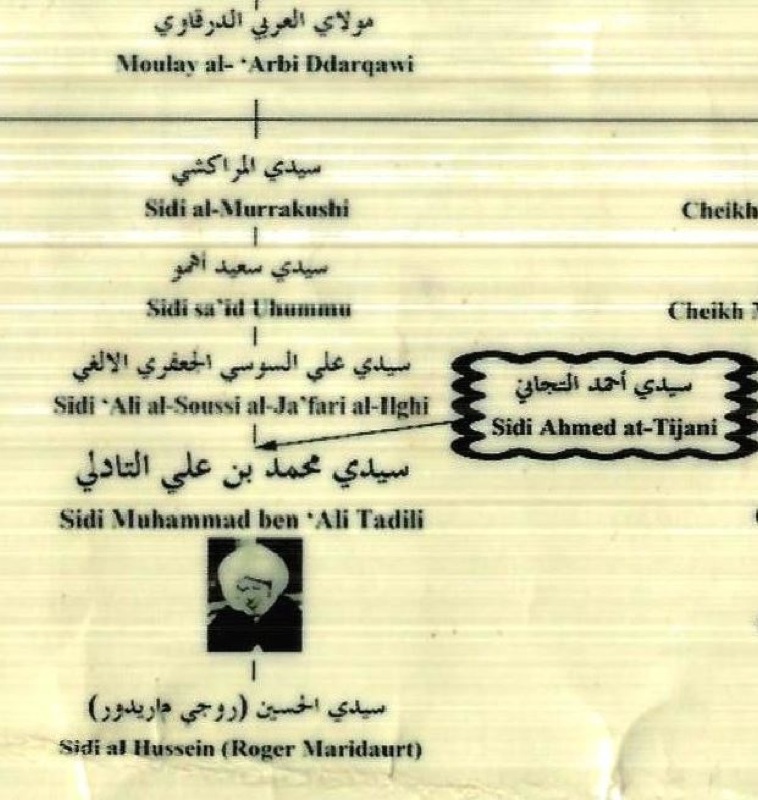 مولاي العربي الدرقاوي
Moulay al- ‘Arbi Ddarqawi
سيدي المراكشي
Sidi al-Murrakushi
Cheikh
سيدي سعيد أهمو
Sidi sa’id Uhummu
Cheikh
سيدي علي السوسي الجعفري الالغي
Sidi ‘Ali al-Soussi al-Ja’fari al-Ilghi
سيدي أحمد التجاني
Sidi Ahmed at-Tijani
سيدي محمد بن علي التادلي
Sidi Muhammad ben ‘Ali Tadili
سيدي الحسين (روجي ماريدور)
Sidi al Hussein (Roger Maridaurt)